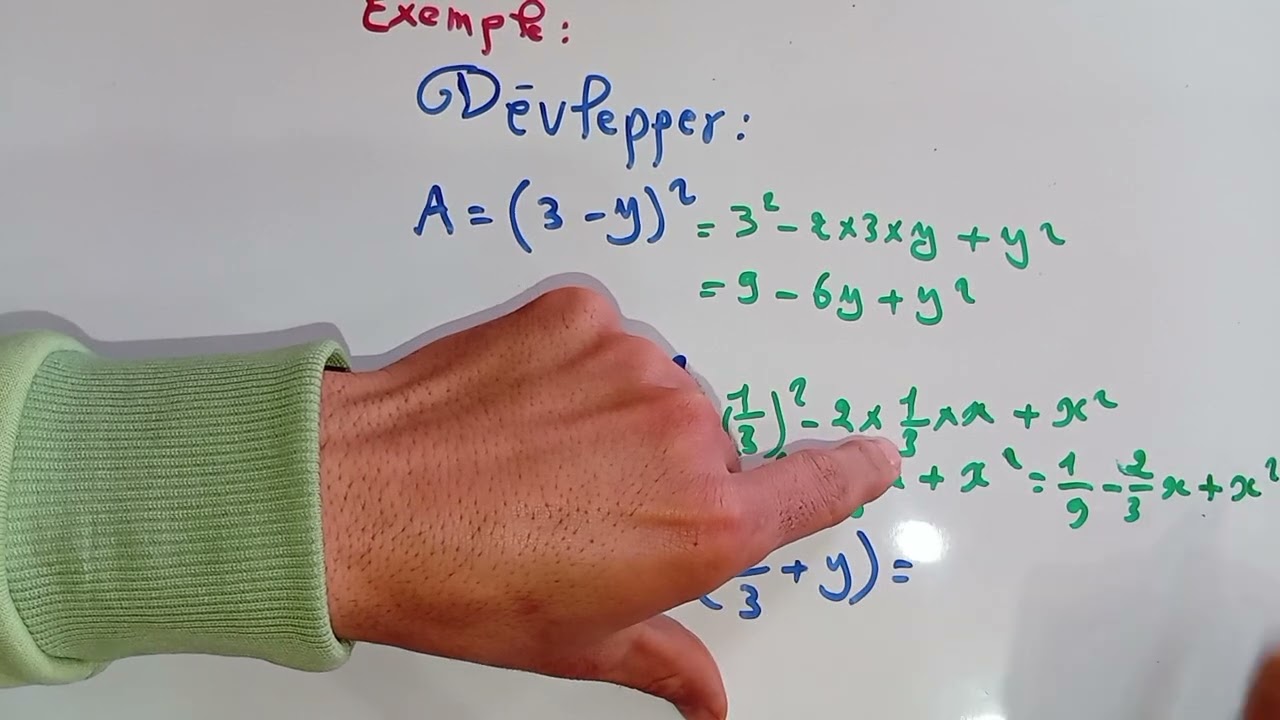 Exemple:
① Dēvlepper:
A = (3 - y)² = 3² - 2×3×y + y²
= 9 - 6y + y²
(1/3)² - 2 × 1/3 × x + x²
+ x² = 1/9 - 2/3 x + x²
3 + y) =